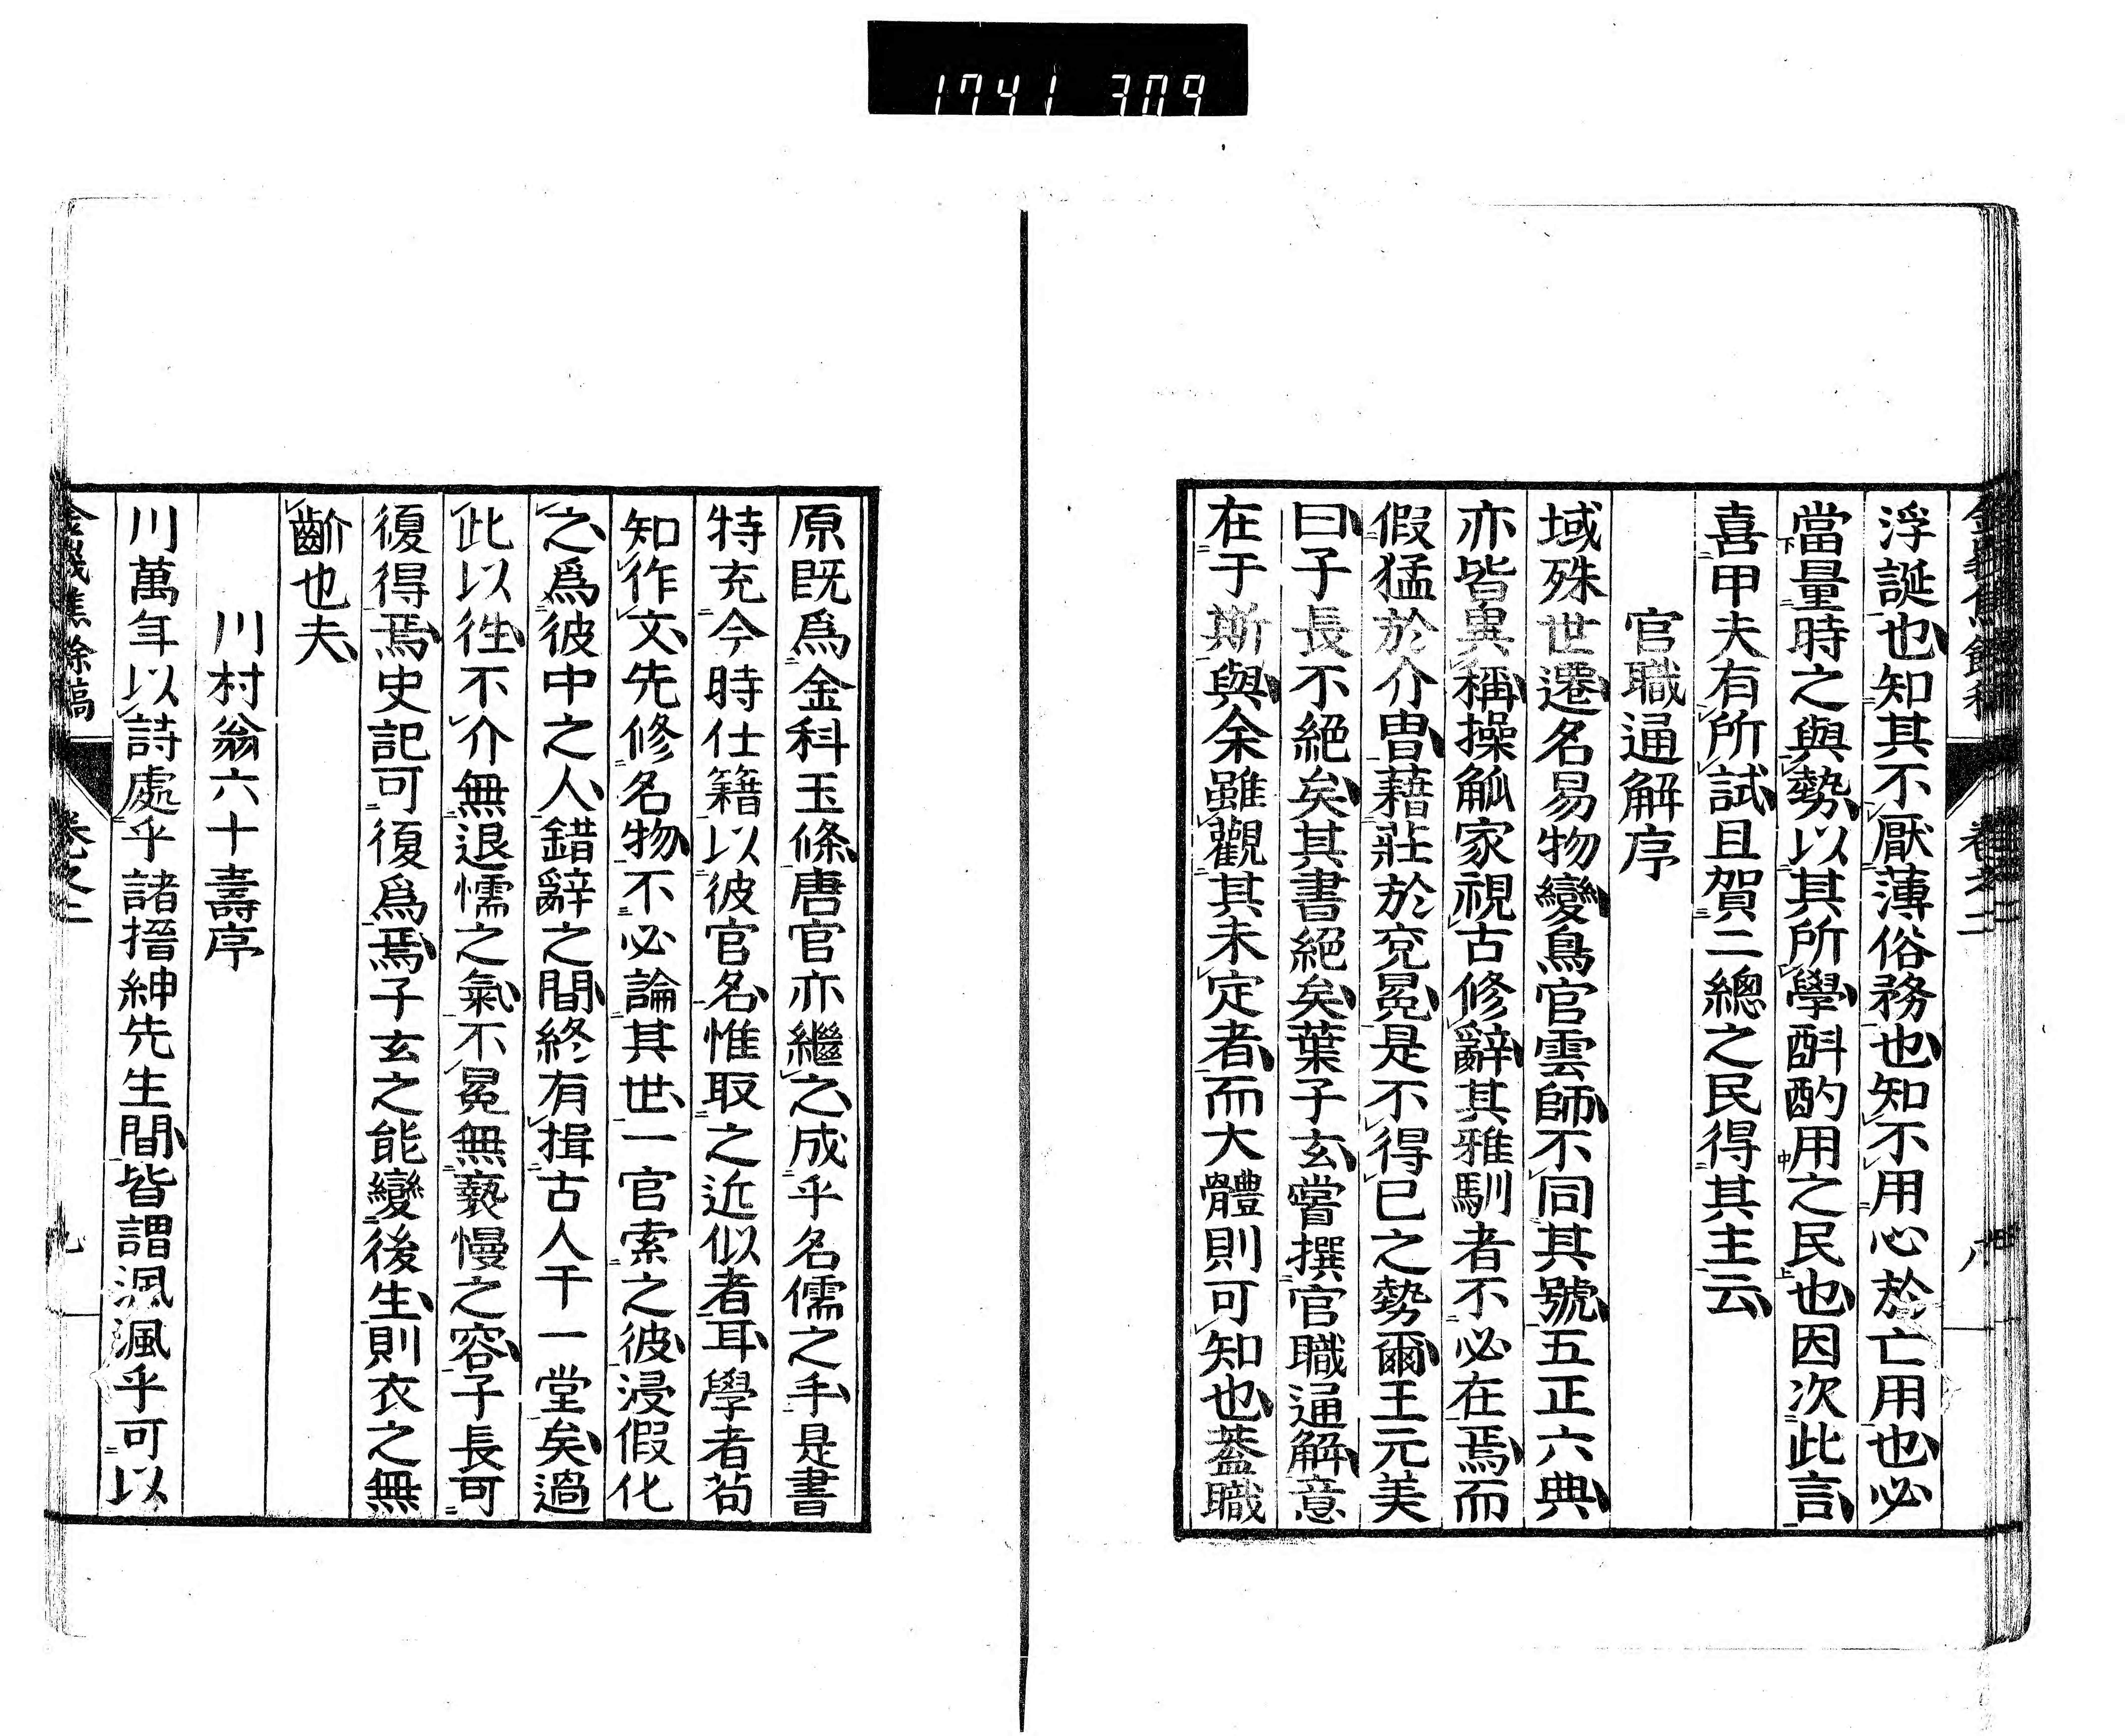 1741 309
浮誕也知其不厭薄俗務也知不用心於亡用也必
當量時之與勢以其所學斟酌用之民也因次此言
喜甲夫有所試且賀二總之民得其主云
官職通解序
域殊世遷名易物變鳥官雲師不同其號五正六典
亦皆異稱操觚家視古修辭其雅馴者不必在焉而
假猛於介冑藉莊於兗冕是不得已之勢爾王元美
曰子長不絕矣其書絕矣葉子玄嘗撰官職通解意
在于斯與余雖觀其未定者而大體則可知也蓋職
卷之二
八
原既爲金科玉條唐官亦繼之成乎名儒之手是書
特充今時仕籍以彼官名惟取之近似者耳學者苟
知作文先修名物不必論其世一官索之彼浸假化
之爲彼中之人錯辭之間終有揖古人于一堂矣過
此以往不介無退懦之氣不冕無褻慢之容子長可
復得焉史記可復爲焉子玄之能變後生則衣之無
齘也夫
川村翁六十壽序
川萬年以詩處乎諸搢紳先生間皆謂渢渢乎可以
焦餘稿
卷之二
九